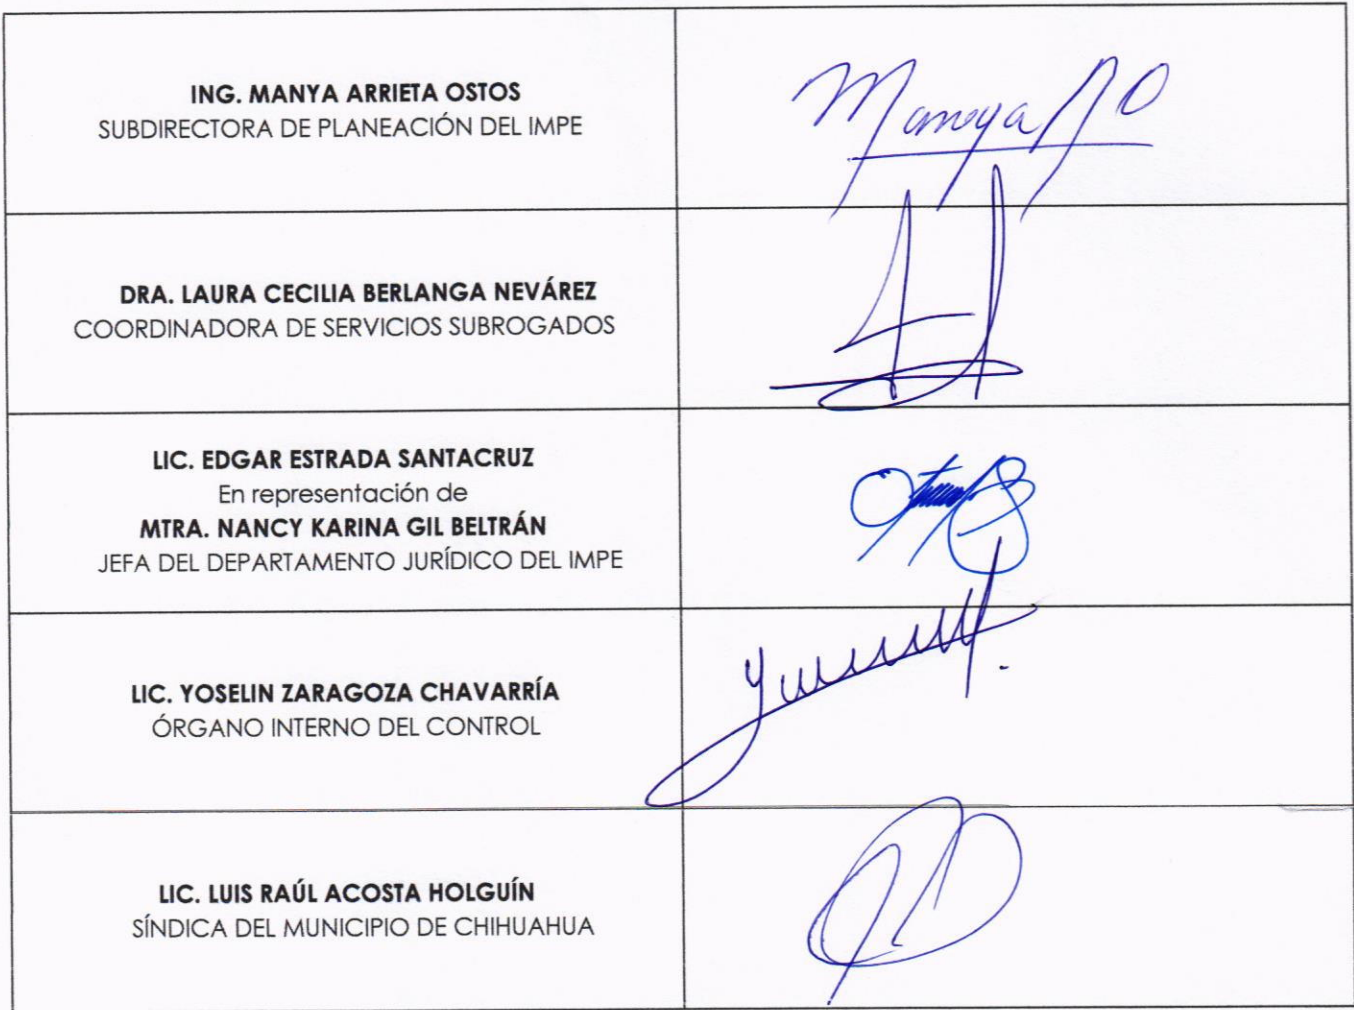 ING. MANYA ARRIETA OSTOS
SUBDIRECTORA DE PLANEACIÓN DEL IMPE
Manya AO
DRA. LAURA CECILIA BERLANGA NEVÁREZ
COORDINADORA DE SERVICIOS SUBROGADOS
LIC. EDGAR ESTRADA SANTACRUZ
En representación de
MTRA. NANCY KARINA GIL BELTRÁN
JEFA DEL DEPARTAMENTO JURÍDICO DEL IMPE
LIC. YOSELIN ZARAGOZA CHAVARRÍA
ÓRGANO INTERNO DEL CONTROL
LIC. LUIS RAÚL ACOSTA HOLGUÍN
SÍNDICA DEL MUNICIPIO DE CHIHUAHUA